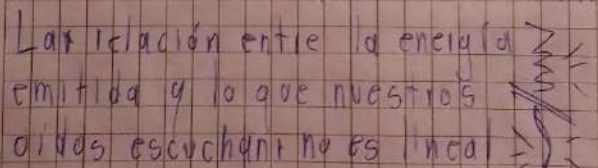 La relación entre la energía
emitida y lo que nuestros
oidos escuchan no es lineal